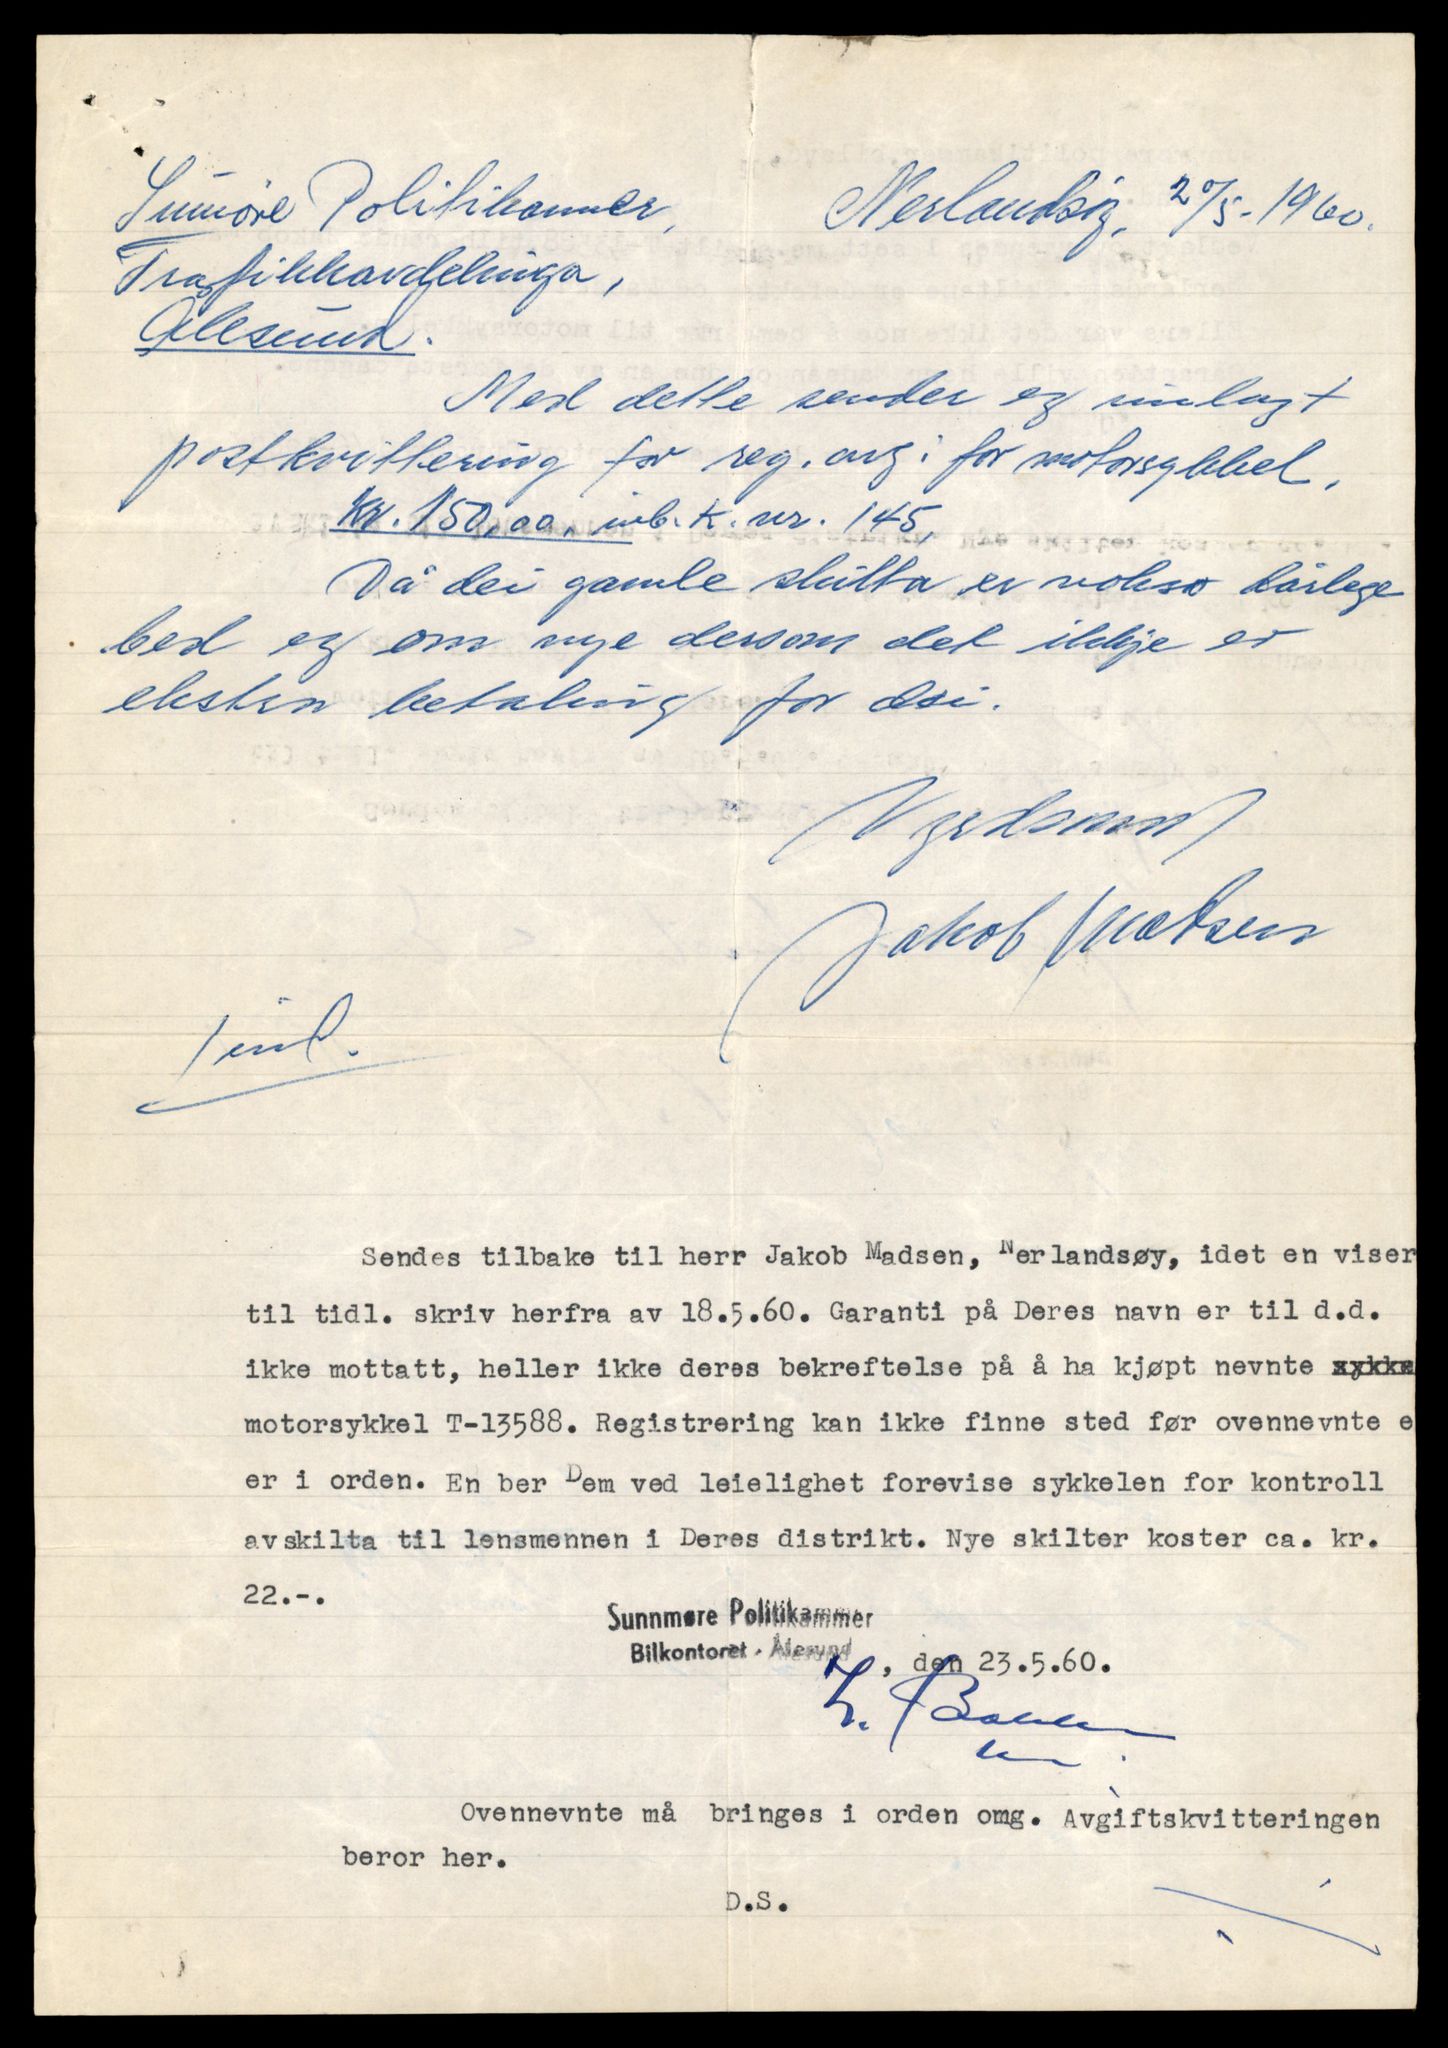 Sunnøre Politikammer, Nerlandsøy, 20/5-1960.
Trafikkavdelinga,
Ålesund.
Med dette sender eg innlagt
postkvittering for reg. avg. for motorsykkel,
kr. 150,00, innb. K. nr. 145,
Då dei gamle skilta er nokso dårlege
bed eg om nye dersom det ikkje er
ekstra betaling for dei.
Vyrdsamt
Jakob Madsen
1 inl.
Sendes tilbake til herr Jakob Madsen, Nerlandsøy, idet en viser
til tidl. skriv herfra av 18.5.60. Garanti på Deres navn er til d.d.
ikke mottatt, heller ikke deres bekreftelse på å ha kjøpt nevnte
motorsykkel T-13588. Registrering kan ikke finne sted før ovennevnte e
er i orden. En ber Dem ved leielighet forevise sykkelen for kontroll
avskilta til lensmennen i Deres distrikt. Nye skilter koster ca. kr.
22.-.
Sunnmøre Politikammer
Bilkontoret - Ålesund , den 23.5.60.
Ovennevnte må bringes i orden omg. Avgiftskvitteringen
beror her.
D.S.